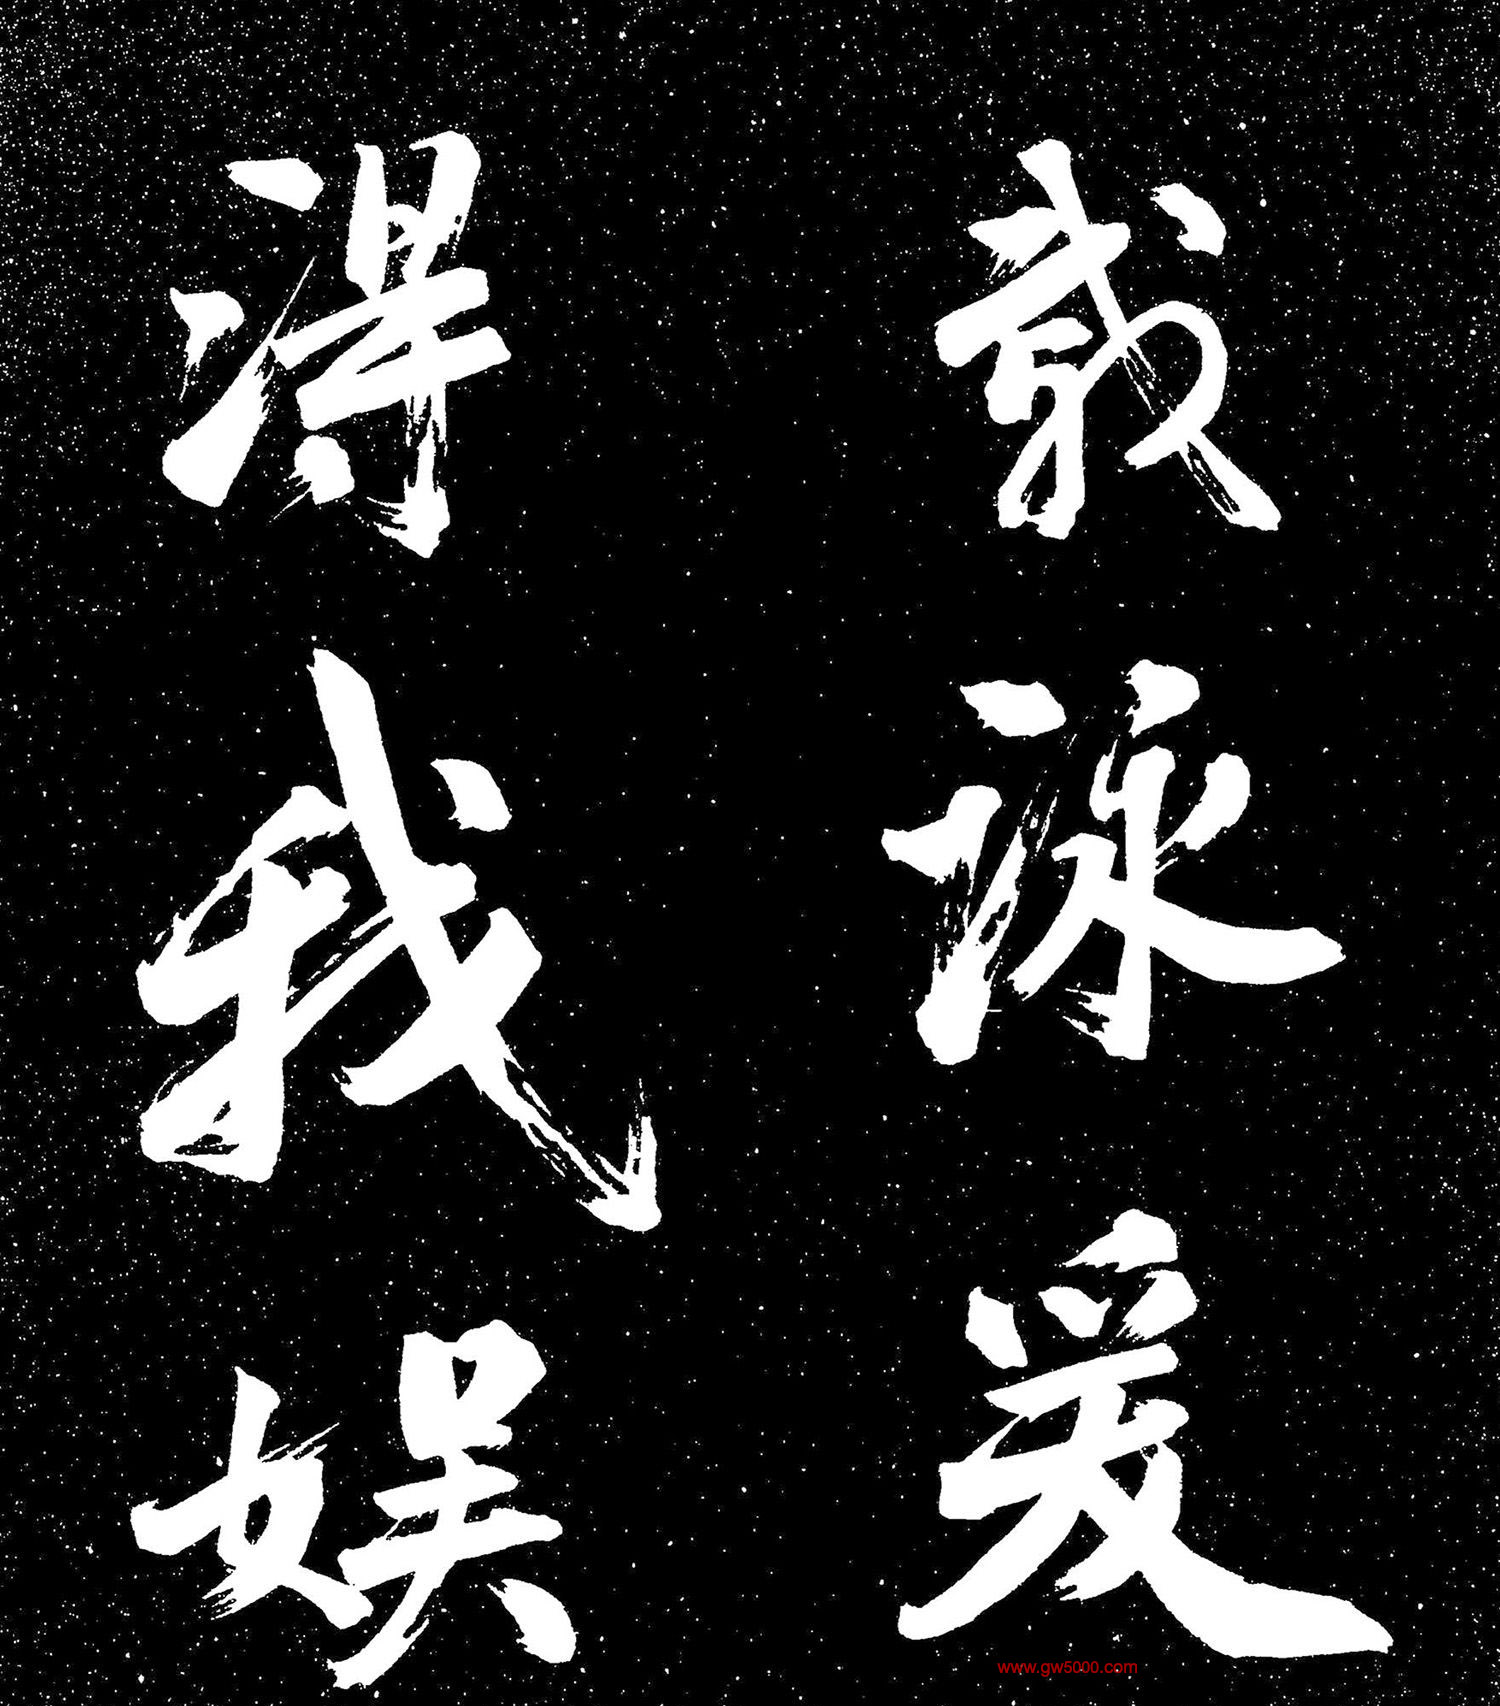 载泳爰
得我娱
www.gw5000.com